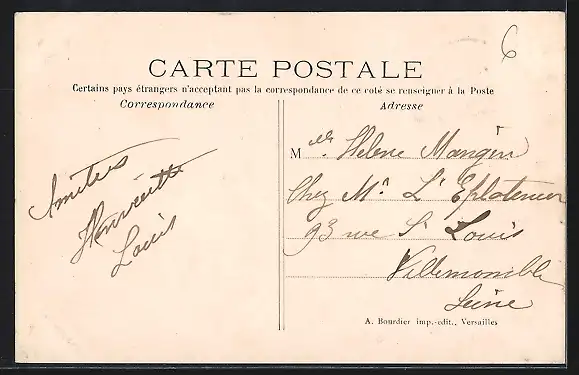 6
CARTE POSTALE
Certains pays étrangers n'acceptant pas la correspondance de ce coté se renseigner à la Poste
Correspondance
Adresse
Amitiés
Henriette
Louis
Melle. Helene Mangin
Chez Mr L'Eplatenier
93 rue St Louis
Villemomble
Seine
A. Bourdier imp.-edit., Versailles